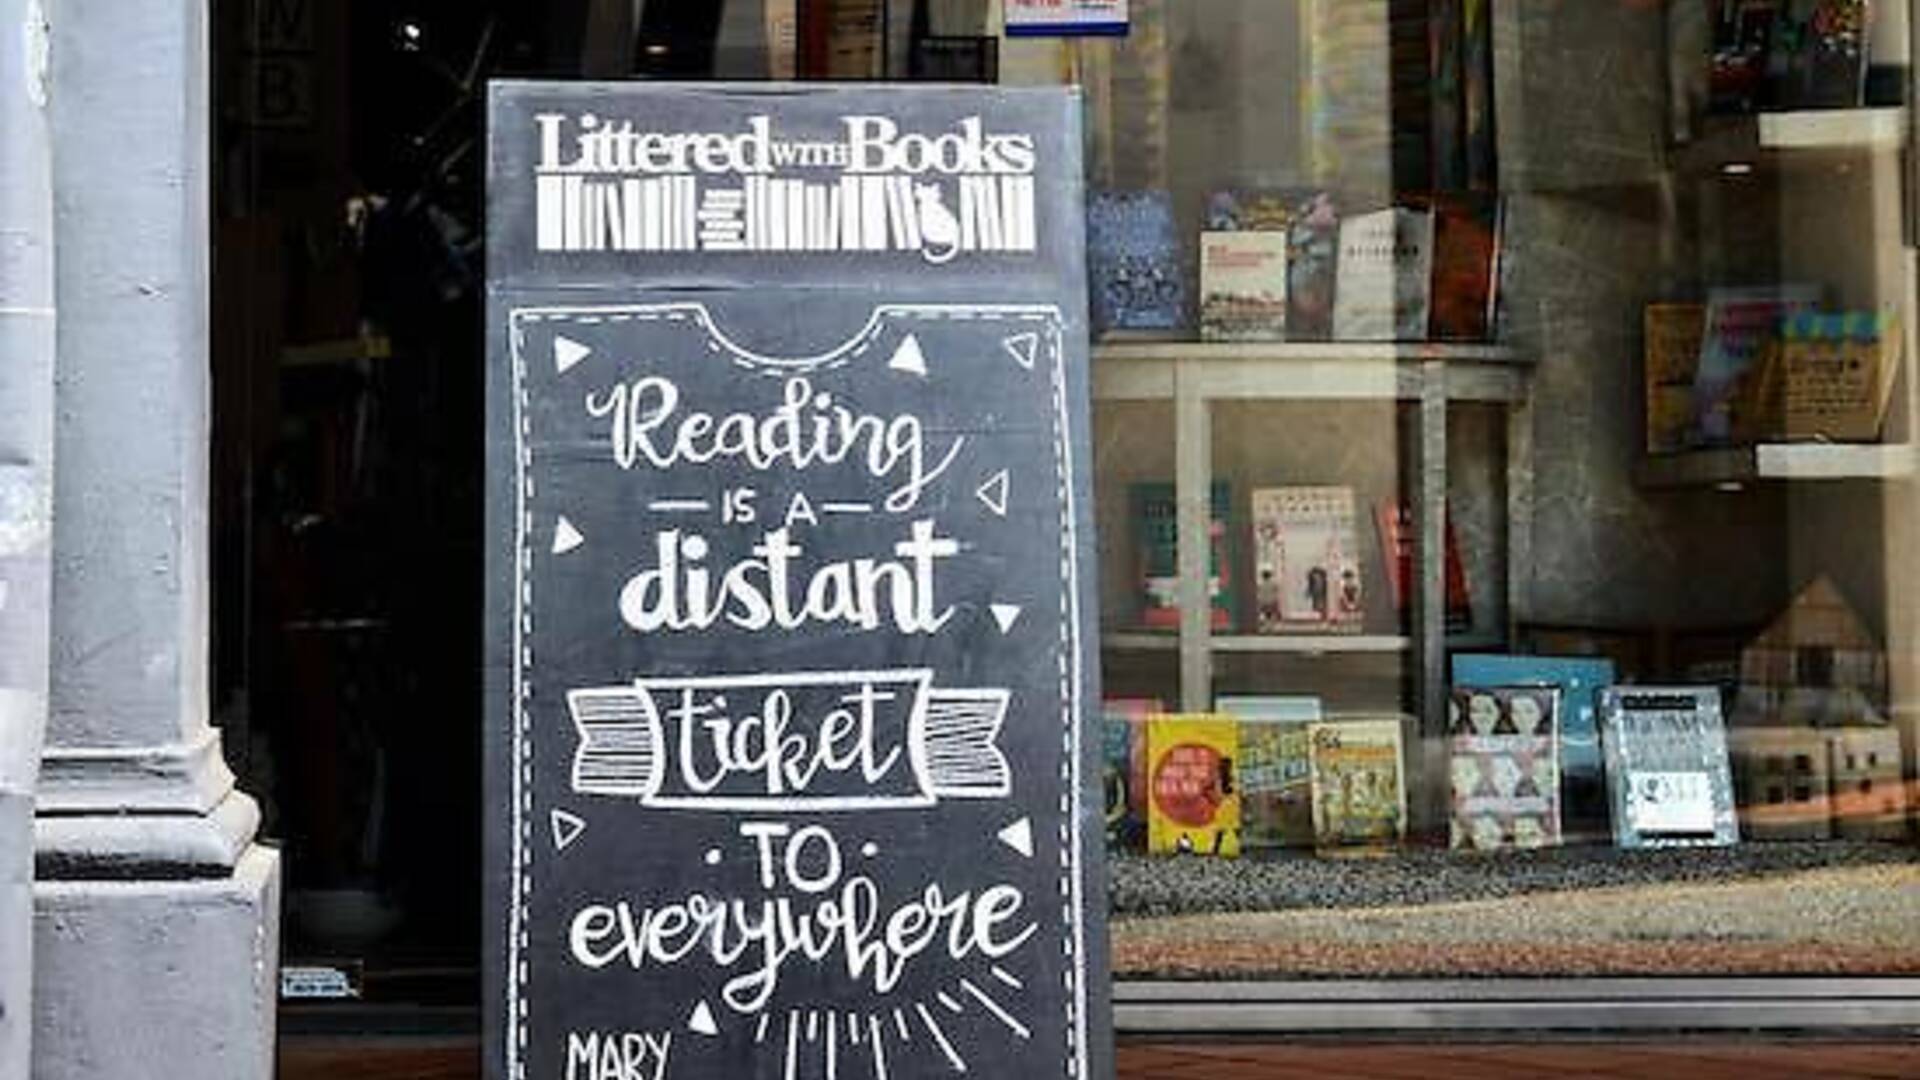 Littered WITH Books
Reading
IS A
distant
ticket
TO
everywhere
MARY